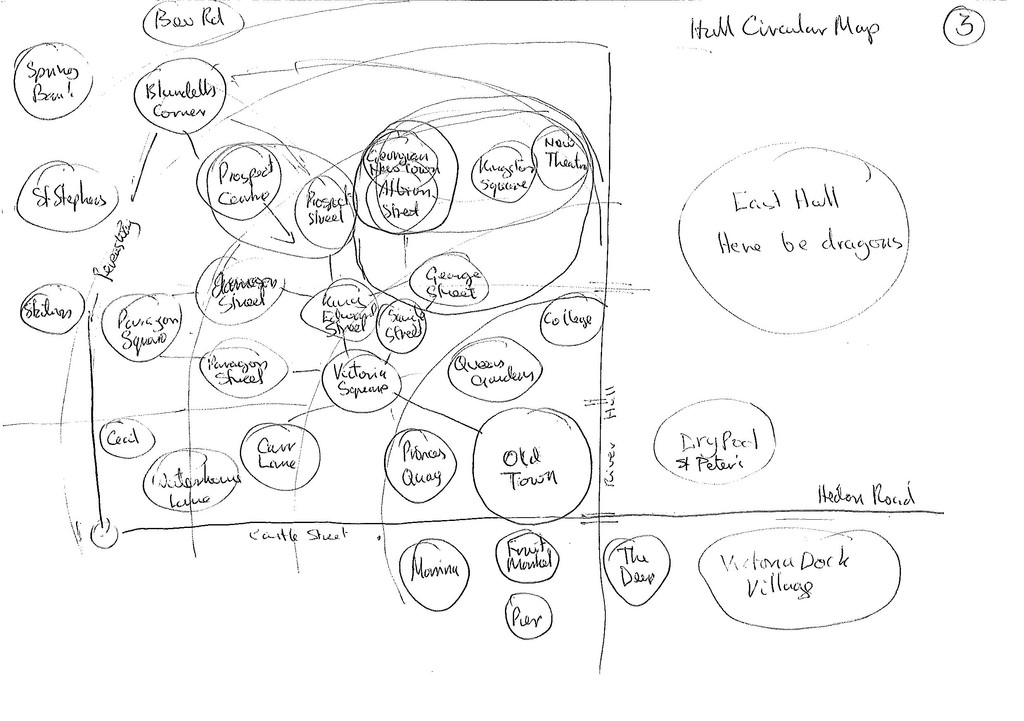 Bev Rd
Hull Circular Map
3
Spring
Bank
Blundells
Corner
Georgian
New Town
Albion
Street
Kingston
Square
New
Theatre
Prospect
Centre
Prospect
Street
St Stephens
East Hull
Here be dragons
Ferensway
George
Street
Jameson
Street
King
Edward
Street
Savile
Street
College
Station
Paragon
Square
Paragon
Street
Victoria
Square
Queens
Gardens
River Hull
Cecil
Carr
Lane
Princes
Quay
Old
Town
Drypool
St Peter's
Waterhouse
Lane
Hedon Road
Castle Street
Marina
Fruit
Market
The
Deep
Victoria Dock
Village
Pier